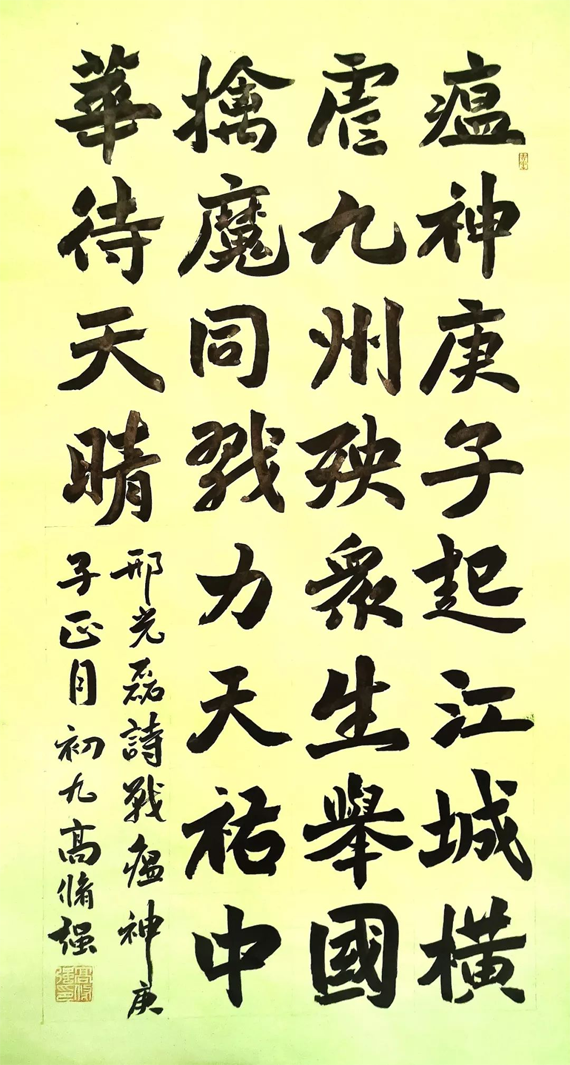 瘟神庚子起江城橫
虐九州殃衆生舉國
擒魔同戮力天祐中
華待天晴
邢光磊詩戰瘟神庚
子正月初九高脩强